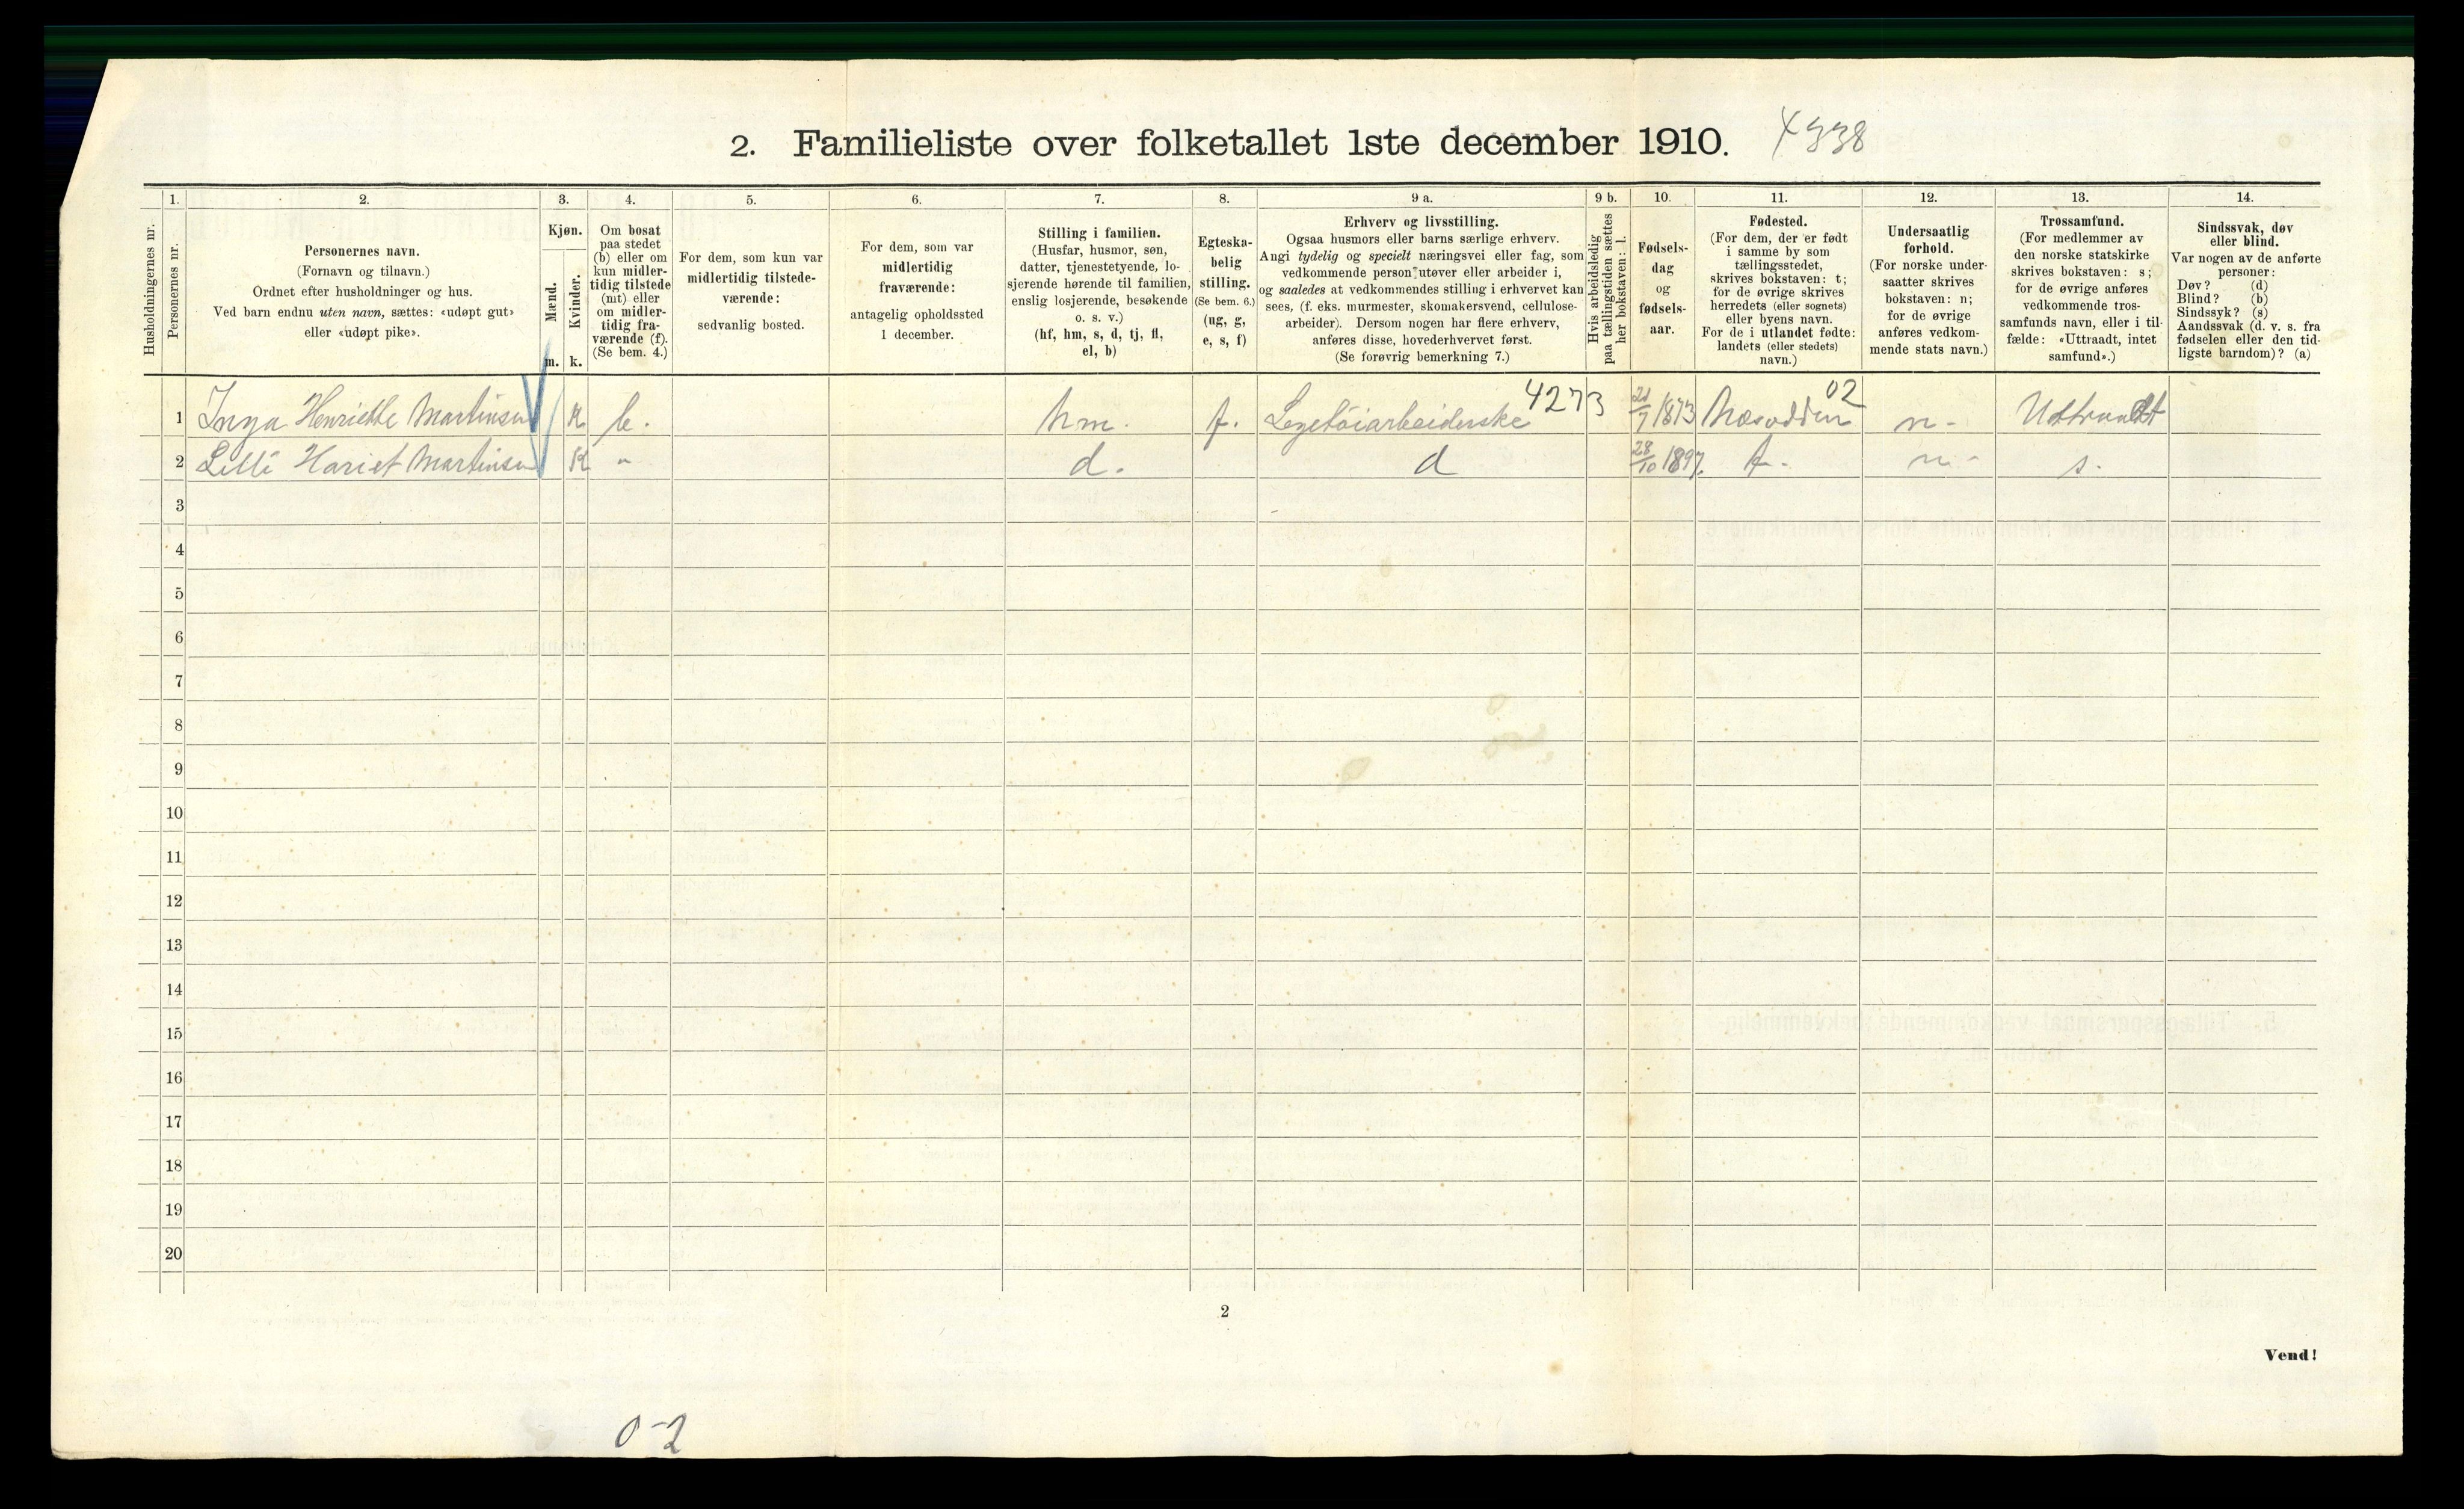 2. Familieliste over folketallet 1ste december 1910. 4338
Husholdningernes nr.
1. Personernes nr.
2. Personernes navn.
(Fornavn og tilnavn.)
Ordnet efter husholdninger og hus.
Ved barn endnu uten navn, sættes: «udøpt gut»
eller «udøpt pike».
3. Kjøn.
Mænd. m.
Kvinder. k.
4. Om bosat
paa stedet
(b) eller om
kun midler-
tidig tilstede
(mt) eller
om midler-
tidig fra-
værende (f).
(Se bem. 4.)
5. For dem, som kun var
midlertidig tilstede-
værende:
sedvanlig bosted.
6. For dem, som var
midlertidig
fraværende:
antagelig opholdssted
1 december.
7. Stilling i familien.
(Husfar, husmor, søn,
datter, tjenestetyende, lo-
sjerende hørende til familien,
enslig losjerende, besøkende
o. s. v.)
(hf, hm, s, d, tj, fl,
el, b)
8. Egteska-
belig
stilling.
(Se bem. 6.)
(ug, g,
e, s, f)
9 a. Erhverv og livsstilling.
Ogsaa husmors eller barns særlige erhverv.
Angi tydelig og specielt næringsvei eller fag, som
vedkommende person utøver eller arbeider i,
og saaledes at vedkommendes stilling i erhvervet kan
sees, (f. eks. murmester, skomakersvend, cellulose-
arbeider). Dersom nogen har flere erhverv,
anføres disse, hovederhvervet først.
(Se forøvrig bemerkning 7.)
9 b. Hvis arbeidsledig
paa tællingstiden sættes
her bokstaven: l.
10. Fødsels-
dag
og
fødsels-
aar.
11. Fødested.
(For dem, der er født
i samme by som
tællingsstedet,
skrives bokstaven: t;
for de øvrige skrives
herredets (eller sognets)
eller byens navn.
For de i utlandet fødte:
landets (eller stedets)
navn.)
12. Undersaatlig
forhold.
(For norske under-
saatter skrives
bokstaven: n;
for de øvrige
anføres vedkom-
mende stats navn.)
13. Trossamfund.
(For medlemmer av
den norske statskirke
skrives bokstaven: s;
for de øvrige anføres
vedkommende tros-
samfunds navn, eller i til-
fælde: «Uttraadt, intet
samfund».)
14. Sindssvak, døv
eller blind.
Var nogen av de anførte
personer:
Døv? (d)
Blind? (b)
Sindssyk? (s)
Aandssvak (d. v. s. fra
fødselen eller den tid-
ligste barndom)? (a)
1 Inga Henriette Martinsen K b. hm. f. Legetøiarbeiderske 4273 21/7 1873 Næsodden 02 n- Uttraadt
2 Lilli Hariet Martinsen K " d. d 28/10 1897. t. n- s.
3
4
5
6
7
8
9
10
11
12
13
14
15
16
17
18
19
20
2
Vend!
0-2